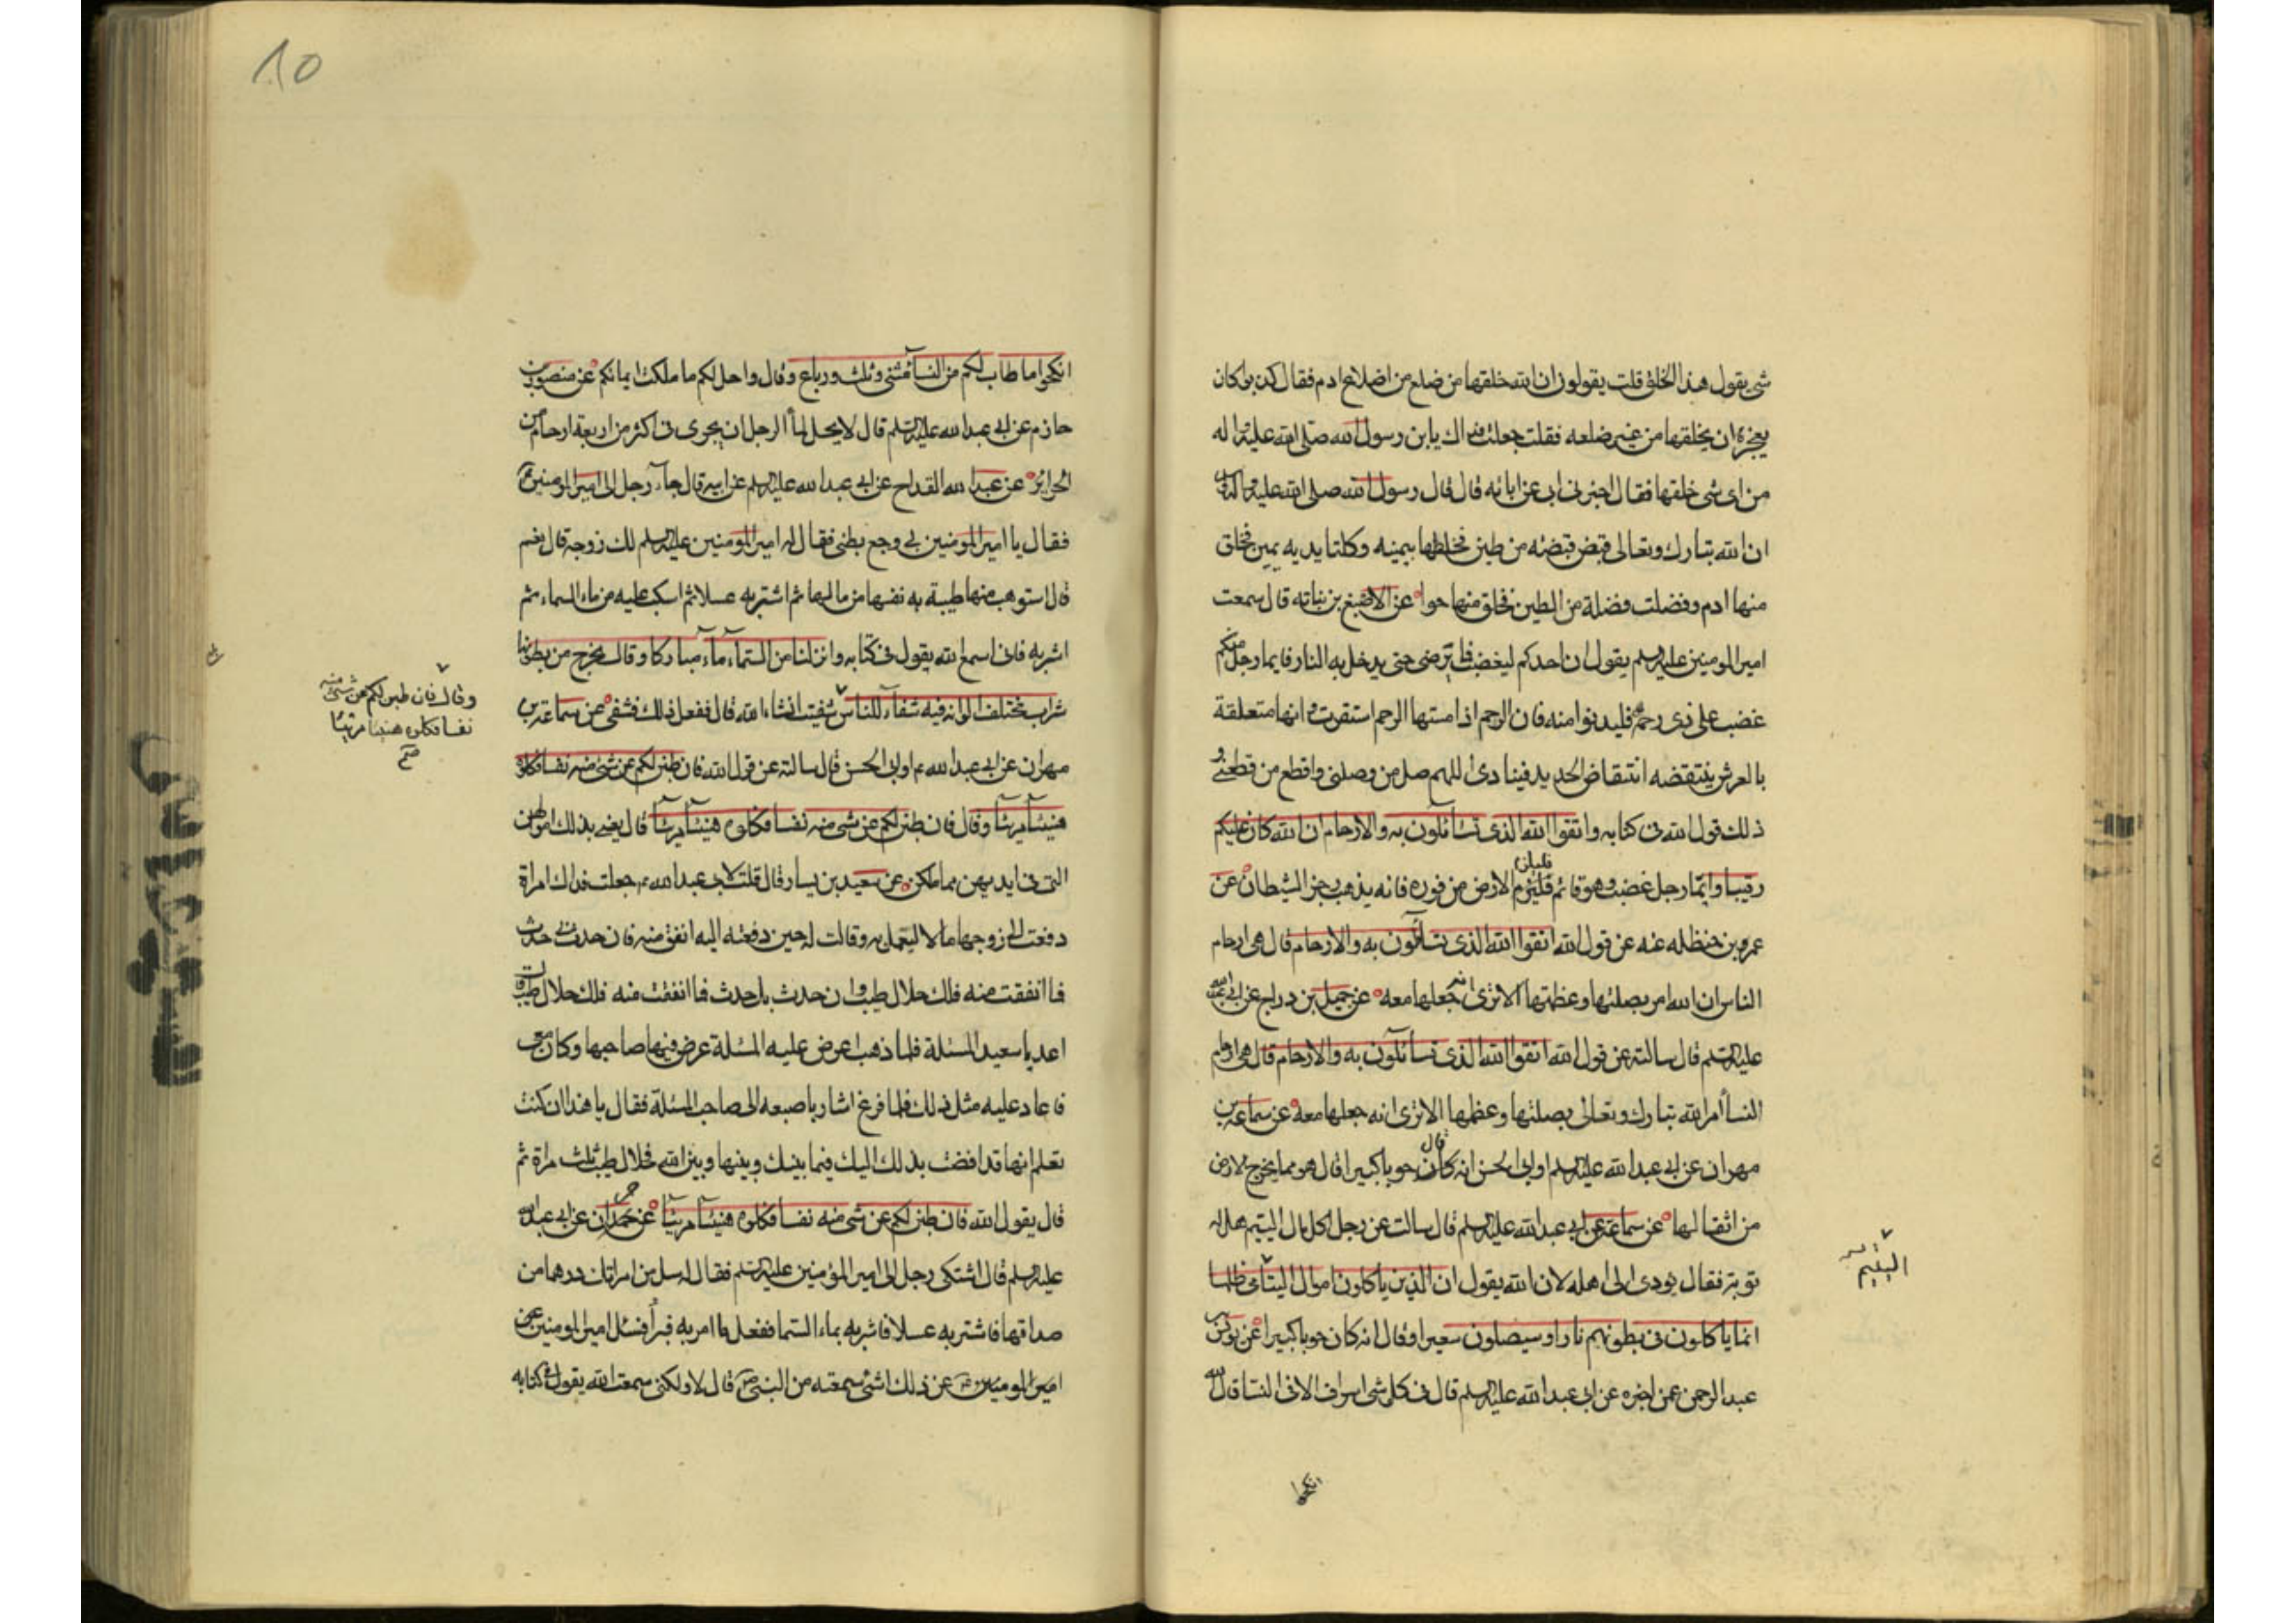 شی یقول هذا الخلق قلت یقولون ان الله خلقها من ضلع من اضلاع ادم فقال کذبوا کان
یعجزه ان یخلقها من غیر ضلعه فقلت جعلت فداک یابن رسول الله صلی الله علیه و اله
من ای شی خلقها فقال اخبرنی ابی عن ابائه قال قال رسول الله صلی الله علیه و اله
ان الله تبارک وتعالی قبض قبضه من طین فخلطها بیمینه وکلتا یدیه یمین فخلق
منها ادم وفضلت فضلة من الطین فخلق منها حوا عن الاصبغ بن نباته قال سمعت
امیر المومنین علیه السلم یقول ان احدکم لیغضب فما یرضی حتی یدخل به النار فایما رجل منکم
غضب علی ذی رحمه فلیدنوا منه فان الرحم اذا مستها الرحم استقرت و انها متعلقة
بالعرش ینتقضه انتقاض الحدید فینادی اللهم صل من وصلنی واقطع من قطعنی و
ذلک قول الله فی کتابه واتقوا الله الذی تسائلون به والارحام ان الله کان علیکم
رقیبا وایما رجل غضب وهو قائم فلیلزم الارض من فوره فانه یذهب رجز الشیطان عن
عمرو بن حنظله عنه عن قول الله اتقوا الله الذی تسائلون به والارحام قال هی ارحام
الناس ان الله امر بصلتها وعظمتها الا تری انه جعلها معه عن جمیل بن دراج عن ابی عبد الله
علیه السلم قال سالته عن قول الله اتقوا الله الذی تسائلون به والارحام قال هی ارحام
النسا امر الله تبارک وتعالی بصلتها وعظمها الا تری انه جعلها معه عن سماعه بن
مهران عن ابی عبد الله علیه السلم او ابی الحسن انه قال کان حوبا کبیرا قال هو مما یخرج الارض
من اثقالها عن سماعة عن ابی عبد الله علیه السلم قال سالت عن رجل اکل مال الیتیم هل له
توبة فقال یودی الی اهله لان الله یقول ان الذین یاکلون اموال الیتامی ظلما
انما یاکلون فی بطونهم نارا وسیصلون سعیرا وقال انه کان حوبا کبیرا عن یونس بن
عبد الرحمن عمن اخبره عن ابی عبد الله علیه السلم قال فی کل شی اسراف الا فی النسا قال الله
انکحوا
الیتیم
10
انکحوا ما طاب لکم من النسآ مثنی وثلث ورباع وقال واحل لکم ما ملکت ایمانکم عن منصور بن
حازم عن ابی عبد الله علیه السلم قال لا یحل لمآ الرجل ان یجری فی اکثر من اربعة ارحام من
الحرائر عن عبد الله القداح عن ابی عبد الله علیه السلم عن ابیه قال جآء رجل الی امیر المومنین ع
فقال یا امیر المومنین بی وجع بطنی فقال له امیر المومنین علیه السلم لک زوجة قال نعم
قال استوهب منها طیبة به نفسها من مالها ثم اشتر به عسلا ثم اسکب علیه من ماء السماء ثم
اشربه فانی اسمع الله یقول فی کتابه وانزلنا من السمآء مآء مبارکا وقال یخرج من بطونها
شراب مختلف الوانه فیه شفآء للناس شفیت انشاء الله قال ففعل ذلک فشفی عن سماعة بن
مهران عن ابی عبد الله ع او ابی الحسن قال سالته عن قول الله فان طبن لکم عن شی منه نفسا فکلوه
هنیئآ مریئآ وقال فان طبن لکم عن شی منه نفسا فکلوه هنیئآ مریئآ قال یعنی بذلک اموالهن
التی فی ایدیهن مما ملکن عن سعید بن یسار قال قلت لابی عبد الله ع جعلت فداک امراة
دفعت الی زوجها مالا لیعمل به وقالت له حین دفعته الیه انفق منه فان حدث بی حدث
فما انفقت منه فلک حلال طیب وان حدث بک حدث فما انفقت منه فلک حلال طیب قال
اعد یا سعید المسئلة فلما ذهب اعرض علیه المسئلة عرض فیها صاحبها وکان معی
فاعاد علیه مثل ذلک فلما فرغ اشار باصبعه الی صاحب المسئلة فقال یا هذا ان کنت
تعلم انها قد افضت بذلک الیک فیما بینک وبینها وبین الله فحلال طیب ثلث مراة ثم
قال یقول الله فان طبن لکم عن شی منه نفسا فکلوه هنیئآ مریئآ عن حمران عن ابی عبد الله
علیه السلم قال اشتکی رجل الی امیر المؤمنین علیه السلم فقال له سل من امراتک درهما من
صداقها فاشتر به عسلا فاشربه بماء السما ففعل ما امر به فبرأ فسئل امیر المومنین عن
امیر المومنین عن ذلک اشئ سمعته من النبی ص قال لا ولکنی سمعت الله یقول فی کتابه
وقال فان طبن لکم عن شئ منه
نفسا فکلوه هنیئا مریئا
صح